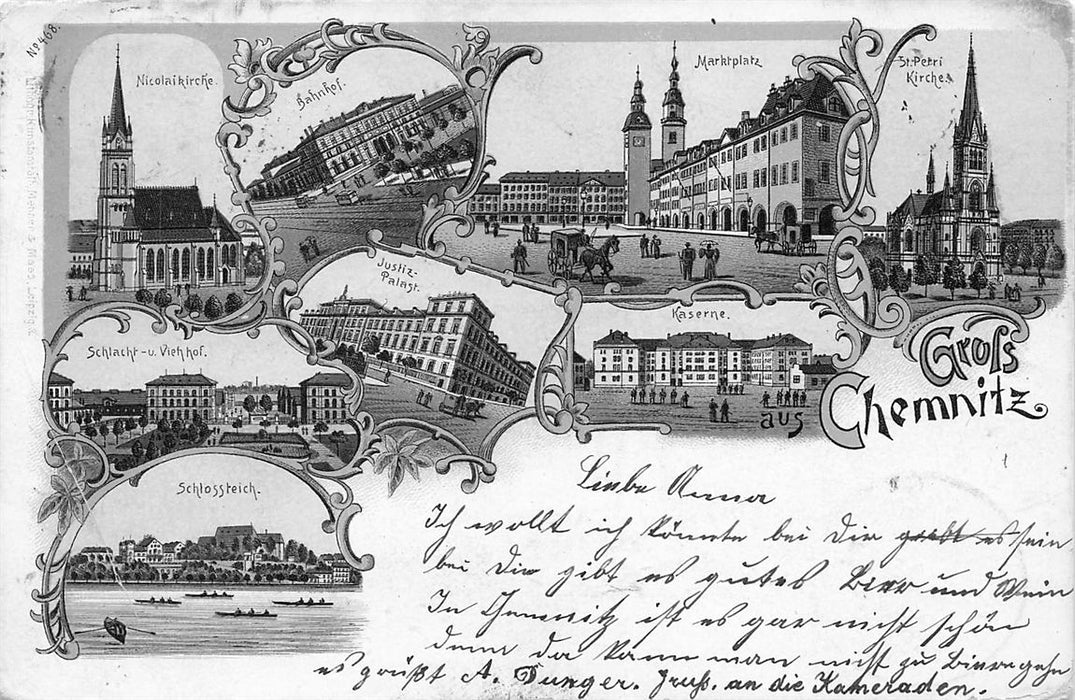 No 468.
Nicolaikirche.
Bahnhof.
Marktplatz
St. Petri
Kirche.
Justiz-
Palast.
Kaserne.
Schlacht-u. Viehhof.
Schlossteich.
Gruss
aus Chemnitz
Liebe Anna
Ich wollt ich könnte bei Dir sein
bei Dir gibt es gutes Bier und Wein
In Chemnitz ist es gar nicht schön
denn da kann man nicht zu Biere gehn
es grüßt A. Gruß. an die Kameraden.